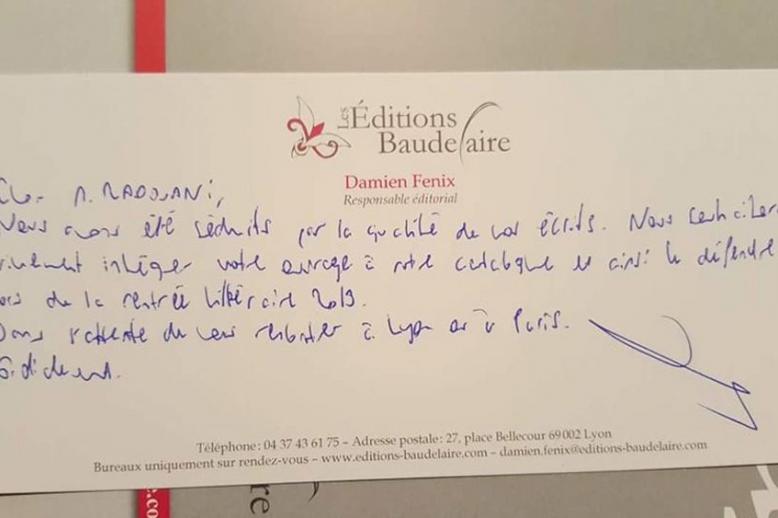 Les Éditions
Baudelaire
Damien Fenix
Responsable éditorial
M. RADOUANI,
Nous avons été séduits par la qualité de vos écrits. Nous souhaiterions
vivement intégrer votre ouvrage à notre catalogue et ainsi le défendre
lors de la rentrée littéraire 2019.
Dans l'attente de vous rencontrer à Lyon ou à Paris.
Cordialement.
Téléphone : 04 37 43 61 75 – Adresse postale : 27, place Bellecour 69002 Lyon
Bureaux uniquement sur rendez-vous – www.editions-baudelaire.com – damien.fenix@editions-baudelaire.com
e.co
re